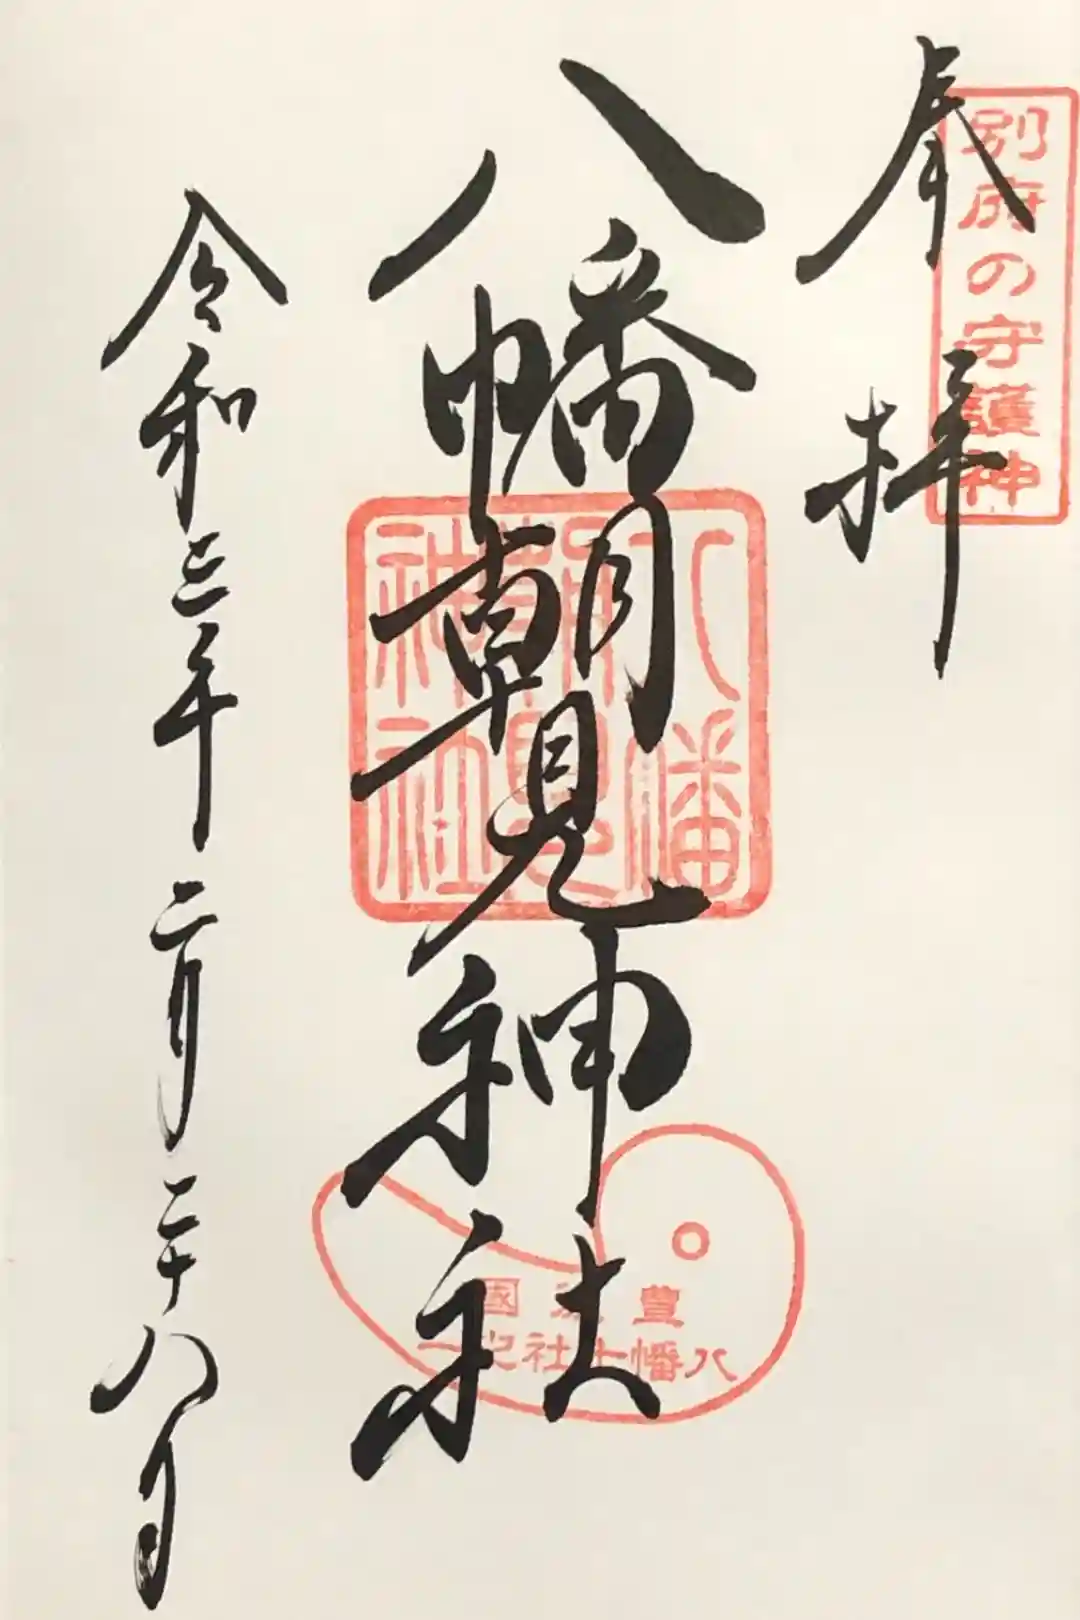 奉拝
別府の守護神
八幡朝見神社
八幡
朝見
神社
豊後國
八幡十社之一
令和三年二月二十八日